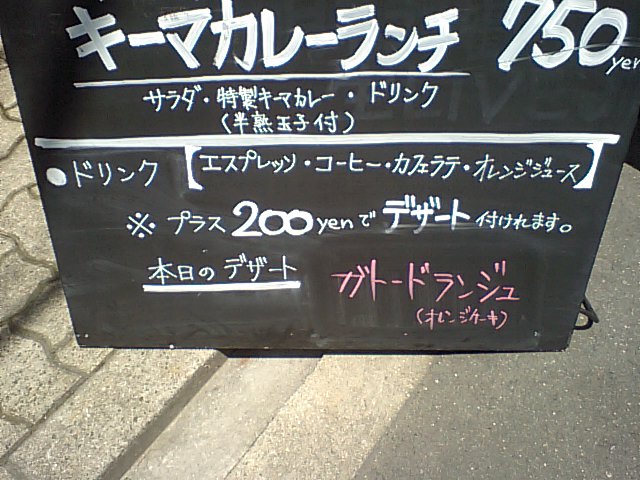 キーマカレーランチ 750yen
サラダ・特製キーマカレー・ドリンク
(半熟玉子付)
●ドリンク【エスプレッソ・コーヒー・カフェラテ・オレンジジュース】
※プラス200yenでデザート付けれます。
本日のデザート ガトードランジュ
(オレンジケーキ)